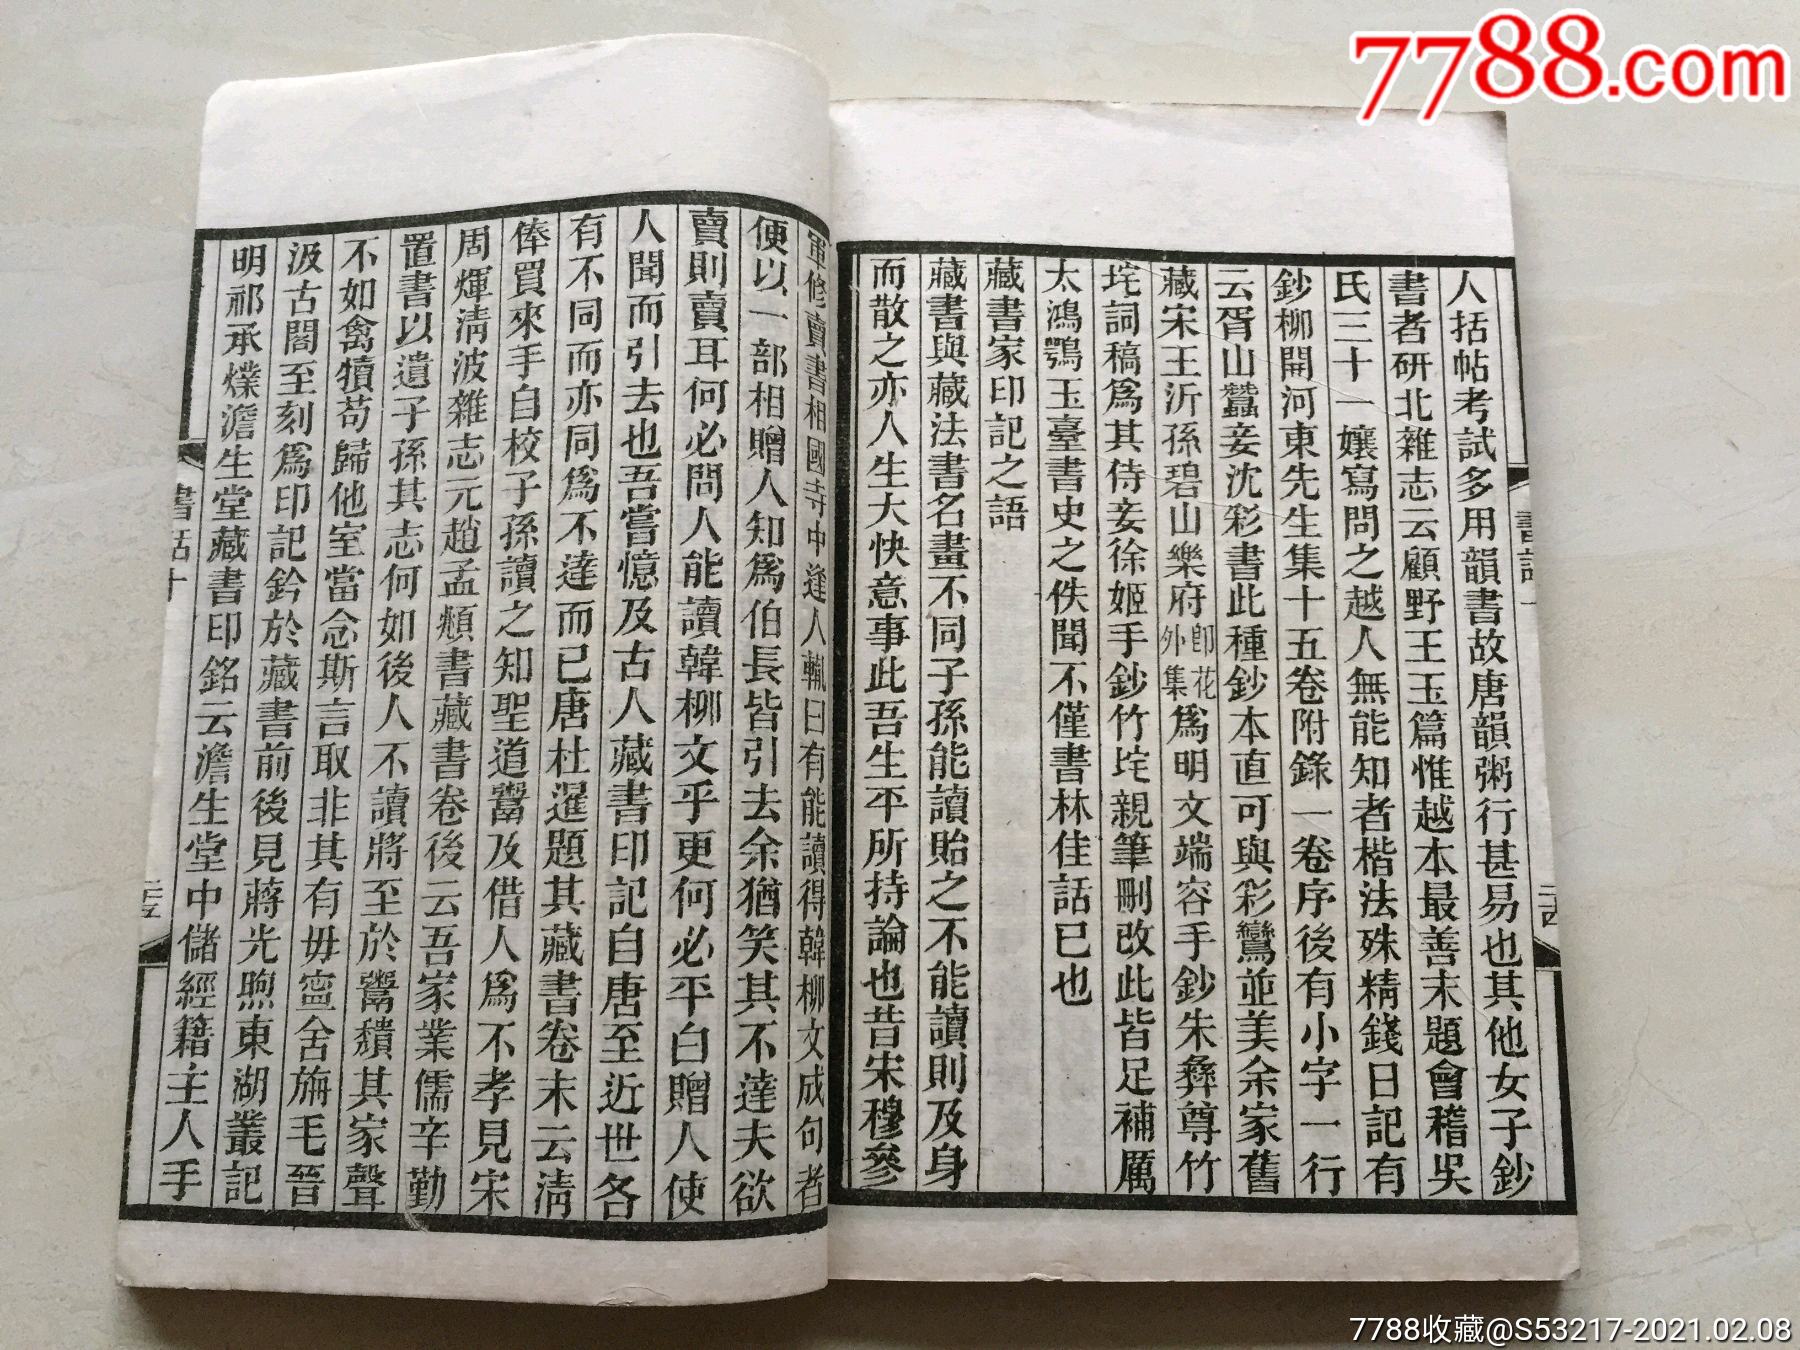 7788.com
人括帖考試多用韻書故唐韻粥行甚易也其他女子鈔
書者研北雜志云顧野王玉篇惟越本最善末題會稽吳
氏三十一孃寫問之越人無能知者楷法殊精錢日記有
鈔柳開河東先生集十五卷附錄一卷序後有小字一行
云胥山蠶妾沈彩書此種鈔本直可與彩鸞並美余家舊
藏宋王沂孫碧山樂府卽花外集爲明文端容手鈔朱彝尊竹
垞詞稿爲其侍妾徐姬手鈔竹垞親筆刪改此皆足補厲
太鴻鶚玉臺書史之佚聞不僅書林佳話已也
藏書家印記之語
藏書與藏法書名畫不同子孫能讀貽之不能讀則及身
而散之亦人生大快意事此吾生平所持論也昔宋穆參
軍修賣書相國寺中逢人輒曰有能讀得韓柳文成句者
便以一部相贈人知爲伯長皆引去余猶笑其不達夫欲
賣則賣耳何必問人能讀韓柳文乎更何必平白贈人使
人聞而引去也吾嘗憶及古人藏書印記自唐至近世各
有不同而亦同爲不達而已唐杜暹題其藏書卷末云清
俸買來手自校子孫讀之知聖道鬻及借人爲不孝見宋
周煇清波雜志元趙孟頫書藏書卷後云吾家業儒辛勤
置書以遺子孫其志何如後人不讀將至於鬻穨其家聲
不如禽犢苟歸他室當念斯言取非其有毋寧舍旃毛晉
汲古閣至刻爲印記鈐於藏書前後見蔣光煦東湖叢記
明祁承㸁澹生堂藏書印銘云澹生堂中儲經籍主人手
書話十
二十五
7788收藏@S53217-2021.02.08